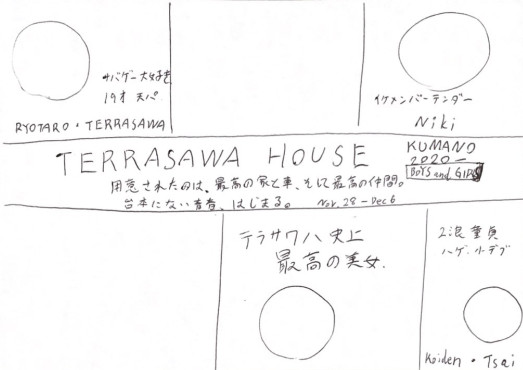 サバゲー大好き
19才 天パ
RYOTARO・TERRASAWA
イケメンバーテンダー
Niki
TERRASAWA HOUSE
KUMANO
2020-
BOYS and GIRLS
用意されたのは、最高の家と車、そして最高の仲間。
台本にない青春、はじまる。 Nov.28-Dec6
テラサワハ史上
最高の美女.
2浪童貞
ハゲ.小デブ
Keiden・Tsai